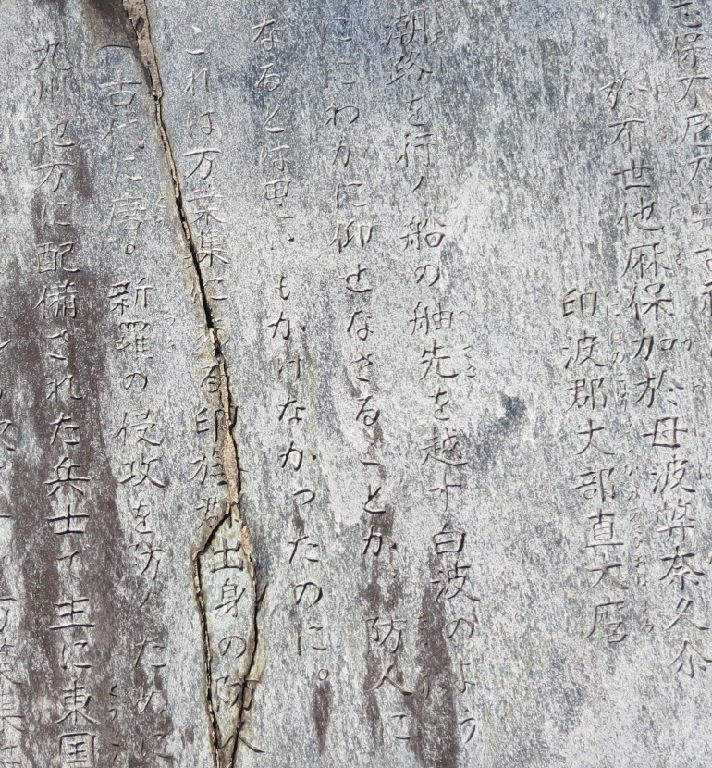 志保不尼乃
於不世他麻保加於母波弊奈久尓
印波郡丈部直大麿
潮路を行く船の舳先を越す白波のよう
ににわかに仰せなさることか、防人に
なるとは思いもかけなかったのに。
これは万葉集にある印波郡出身の防人
(古代に唐。新羅の侵攻を防ぐために
九州地方に配備された兵士で主に東国